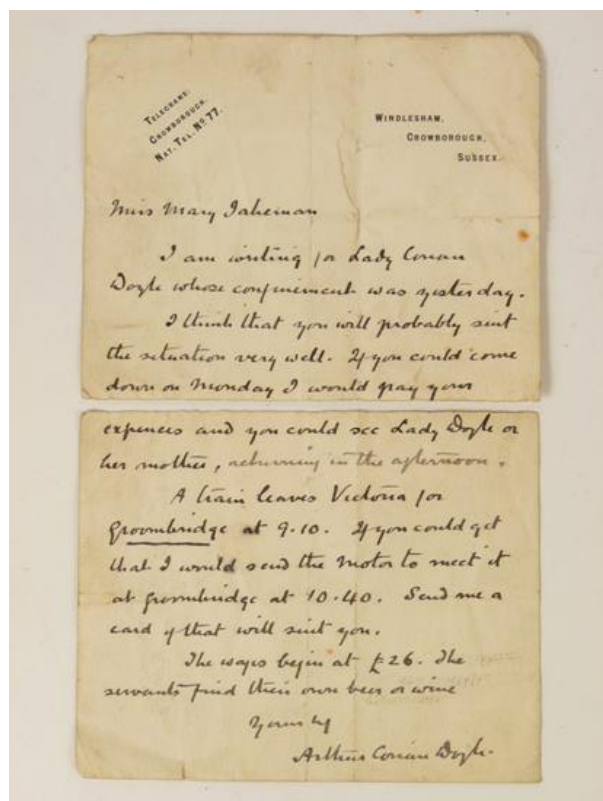 TELEGRAMS.
CROWBOROUGH.
NAT. TEL. No 77.
WINDLESHAM,
CROWBOROUGH,
SUSSEX.
Miss Mary Jakeman
I am writing for Lady Conan
Doyle whose confinement was yesterday.
I think that you will probably suit
the situation very well. If you could come
down on Monday I would pay your
expences and you could see Lady Doyle or
her mother, returning in the afternoon.
A train leaves Victoria for
Groombridge at 9.10. If you could get
that I would send the motor to meet it
at Groombridge at 10.40. Send me a
card if that will suit you.
The wages begin at £26. The
servants find their own beer or wine
Yours
Arthur Conan Doyle.